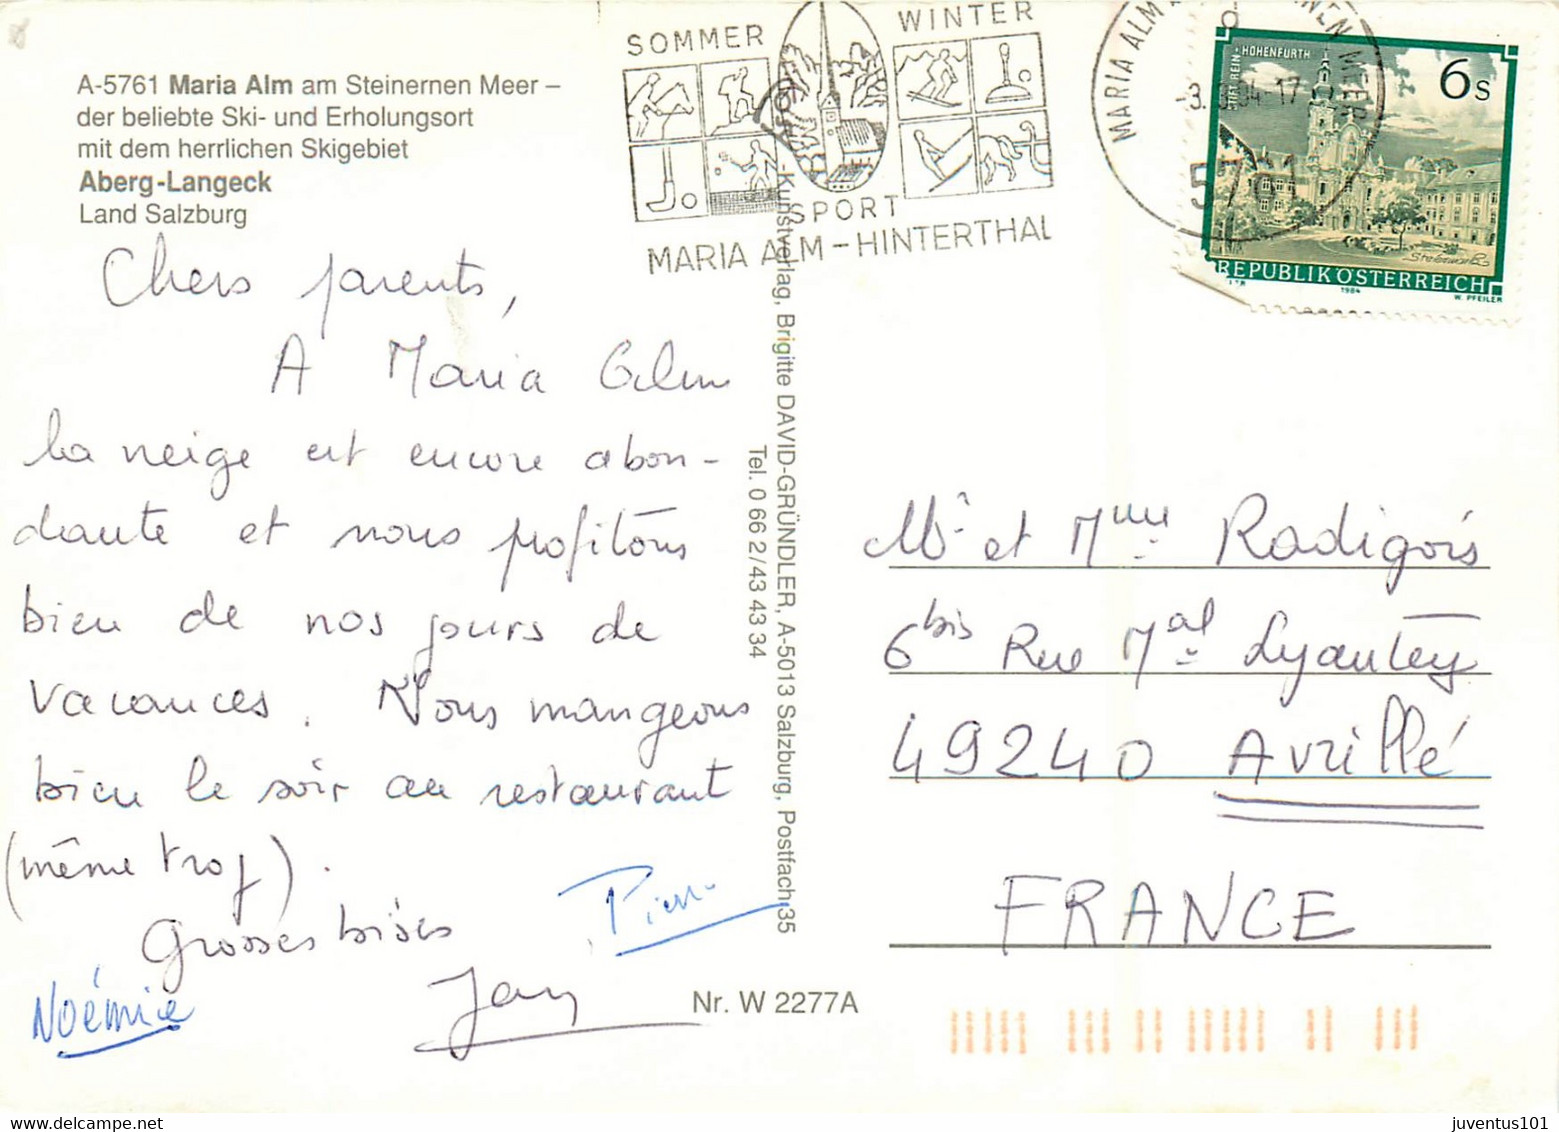 A-5761 Maria Alm am Steinernen Meer –
der beliebte Ski- und Erholungsort
mit dem herrlichen Skigebiet
Aberg-Langeck
Land Salzburg
SOMMER
WINTER
SPORT
MARIA ALM – HINTERTHAL
MARIA ALM
NEN MEER
5761
HOHENFURTH
6 S
REPUBLIK ÖSTERREICH
1984
W. PFEILER
Chers parents,
A Maria Alm
la neige est encore abon-
dante et nous profitons
bien de nos jours de
vacances. Nous mangeons
bien le soir au restaurant
(même trop).
Grosses bises
Pierre
Noémie
Kunstverlag, Brigitte DAVID-GRÜNDLER, A-5013 Salzburg, Postfach 35
Tel. 0 66 2/43 43 34
Nr. W 2277A
Mr et Mme Radigois
6 bis Rue Mal Lyautey
49240 Avrillé
FRANCE
juventus101